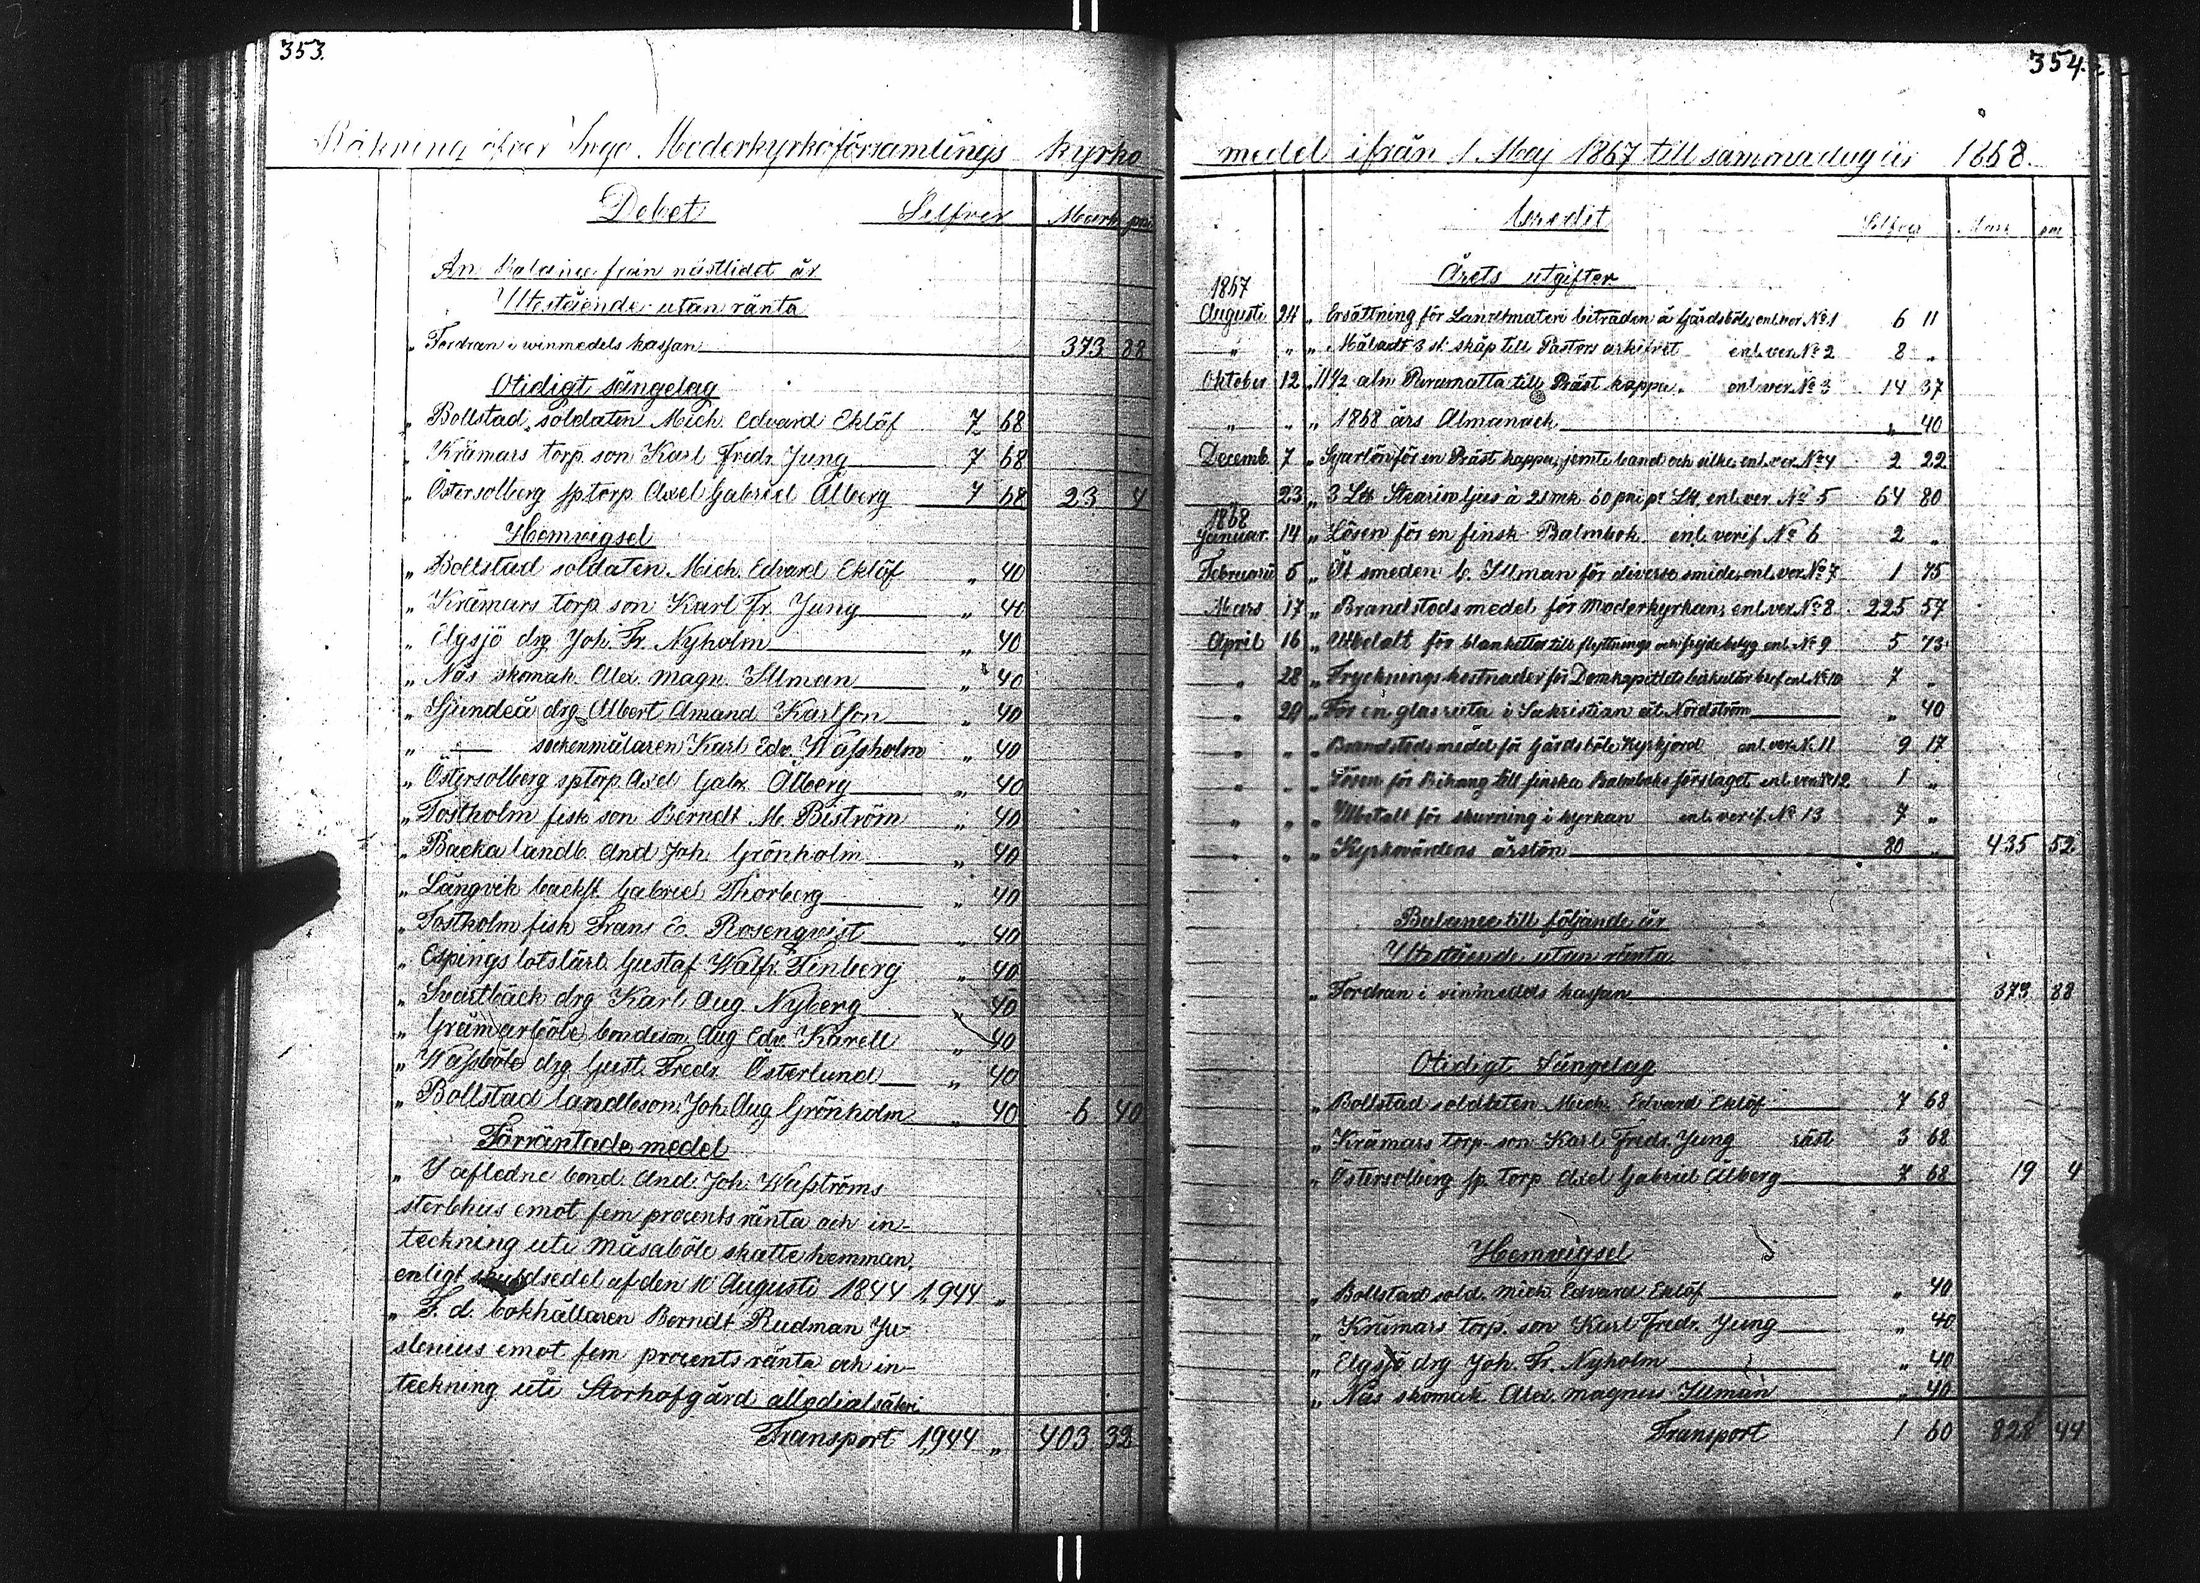 353.
Räkning öfver Ingo Moderkyrkoförsamlings kyrko
Debet Silfver Mark pni
An Balance från nästlidet år
Utestående utan ränta
" Fordran i winmedels kassan 373 88
Otidigt sängelag
" Bollstad soldaten Mich. Edvard Eklöf 7 68
" Krämars torp. son Karl Fredr. Jung 7 68
" Östersolberg sptorp Axel Gabriel Ålberg 7 68 23 4
Hemvigsel
" Bollstad soldaten Mich. Edvard Eklöf " 40
" Krämars torp son Karl Fr. Jung " 40
" Elgsjö drg Joh. Fr. Nyholm " 40
" Näs skomak. Alex. Magn. Illman " 40
" Sjundeå drg Albert Amand Karlsson " 40
" — sockenmålaren Karl Edv. Wassholm " 40
" Östersolberg sptorp Axel Gabr. Ålberg " 40
" Tostholm fisk. son Berndt M. Biström " 40
" Backa landb. And Joh. Grönholm " 40
" Långvik backst. Gabriel Thorberg " 40
" Tostholm fisk Frans E. Rosenqvist " 40
" Espings lotslärl Gustaf Walfr. Finberg " 40
" Svartbäck drg Karl Aug Nyberg " 40
" Grämarböle bondeson Aug Edv. Karell " 40
" Wassböle drg Gust. Fredr. Österlund " 40
" Bollstad landb.son. Joh. Aug Grönholm " 40 6 40
Förräntade medel
" I afledne bond. And. Joh. Wasströms
sterbhus emot fem procents ränta och in-
teckning uti Måsaböle skatte hemman,
enligt skuldsedel af den 10 Augusti 1844 1,944 "
" F. d. bokhållaren Berndt Rudman Ju-
slenius emot fem procents ränta och in-
teckning uti Storhofgård allodialsäteri
Transport 1,944 " 403 32
354.
medel ifrån 1 Maj 1867 till samma dag år 1868.
Credit Silfver Mark pni
Årets utgifter
1867
Augusti 24 " Ersättning för Landtmäteri biträden å Gårdsböle, enl. ver No 1 6 11
" " " Måladt 3 st. skåp till Pastors arkifvet enl. ver. No 2 8 "
Oktober 12 " 11 1/2 aln Paramatta till Präst kappa. enl. ver. No 3 14 37
" " " 1868 års Almanach " 40
Decemb. 7 " Syarlön för en Präst kappa, jemte band och silke, enl. ver. No 4 2 22
23 " 3 L℔ Stearin ljus à 21 mk 60 pni pr L℔, enl. ver. No 5 64 80
1868
Januar. 14 " Lösen för en finsk Psalmbok enl. verif. No 6 2 "
Februarii 5 " Åt smeden C. Illman för diverse smide, enl. ver. No 7 1 75
Mars 17 " Brandstods medel för Moderkyrkan, enl. ver. No 8 225 57
April 16 " Utbetalt för blanketter till flyttnings och frejdebetyg enl. No 9 5 73
" 28 " Tryckningskostnader för Domkapitlets cirkulär bref enl. No 10 7 "
" 29 " För en glasruta i Sakristian åt Nordström " 40
" " " Brandstods medel för Gårdsböle Kyrkjord enl. ver. N. 11 9 17
" " " Lösen för Bihang till finska Psalmboks förslaget enl. ver. No 12 1 "
" " " Utbetalt för skurning i kyrkan enl. verif. No 13 7 "
" " " Kyrkovärdens årslön 80 " 435 52
Balance till följande år
Utestående utan ränta
" Fordran i vinmedels kassan 373 88
Otidigt Sängelag
" Bollstad soldaten Mich. Edvard Eklöf 7 68
" Krämars torp. son Karl Fredr. Jung räst 3 68
" Östersolberg sp. torp Axel Gabriel Ålberg 7 68 19 4
Hemvigsel
" Bollstad sold. Mich Edvard Eklöf " 40
" Krämars torp. son Karl Fredr. Jung " 40
" Elgsjö drg Joh. Fr. Nyholm " 40
" Näs skomak. Alex. Magnus Illman " 40
Transport 1 60 828 44